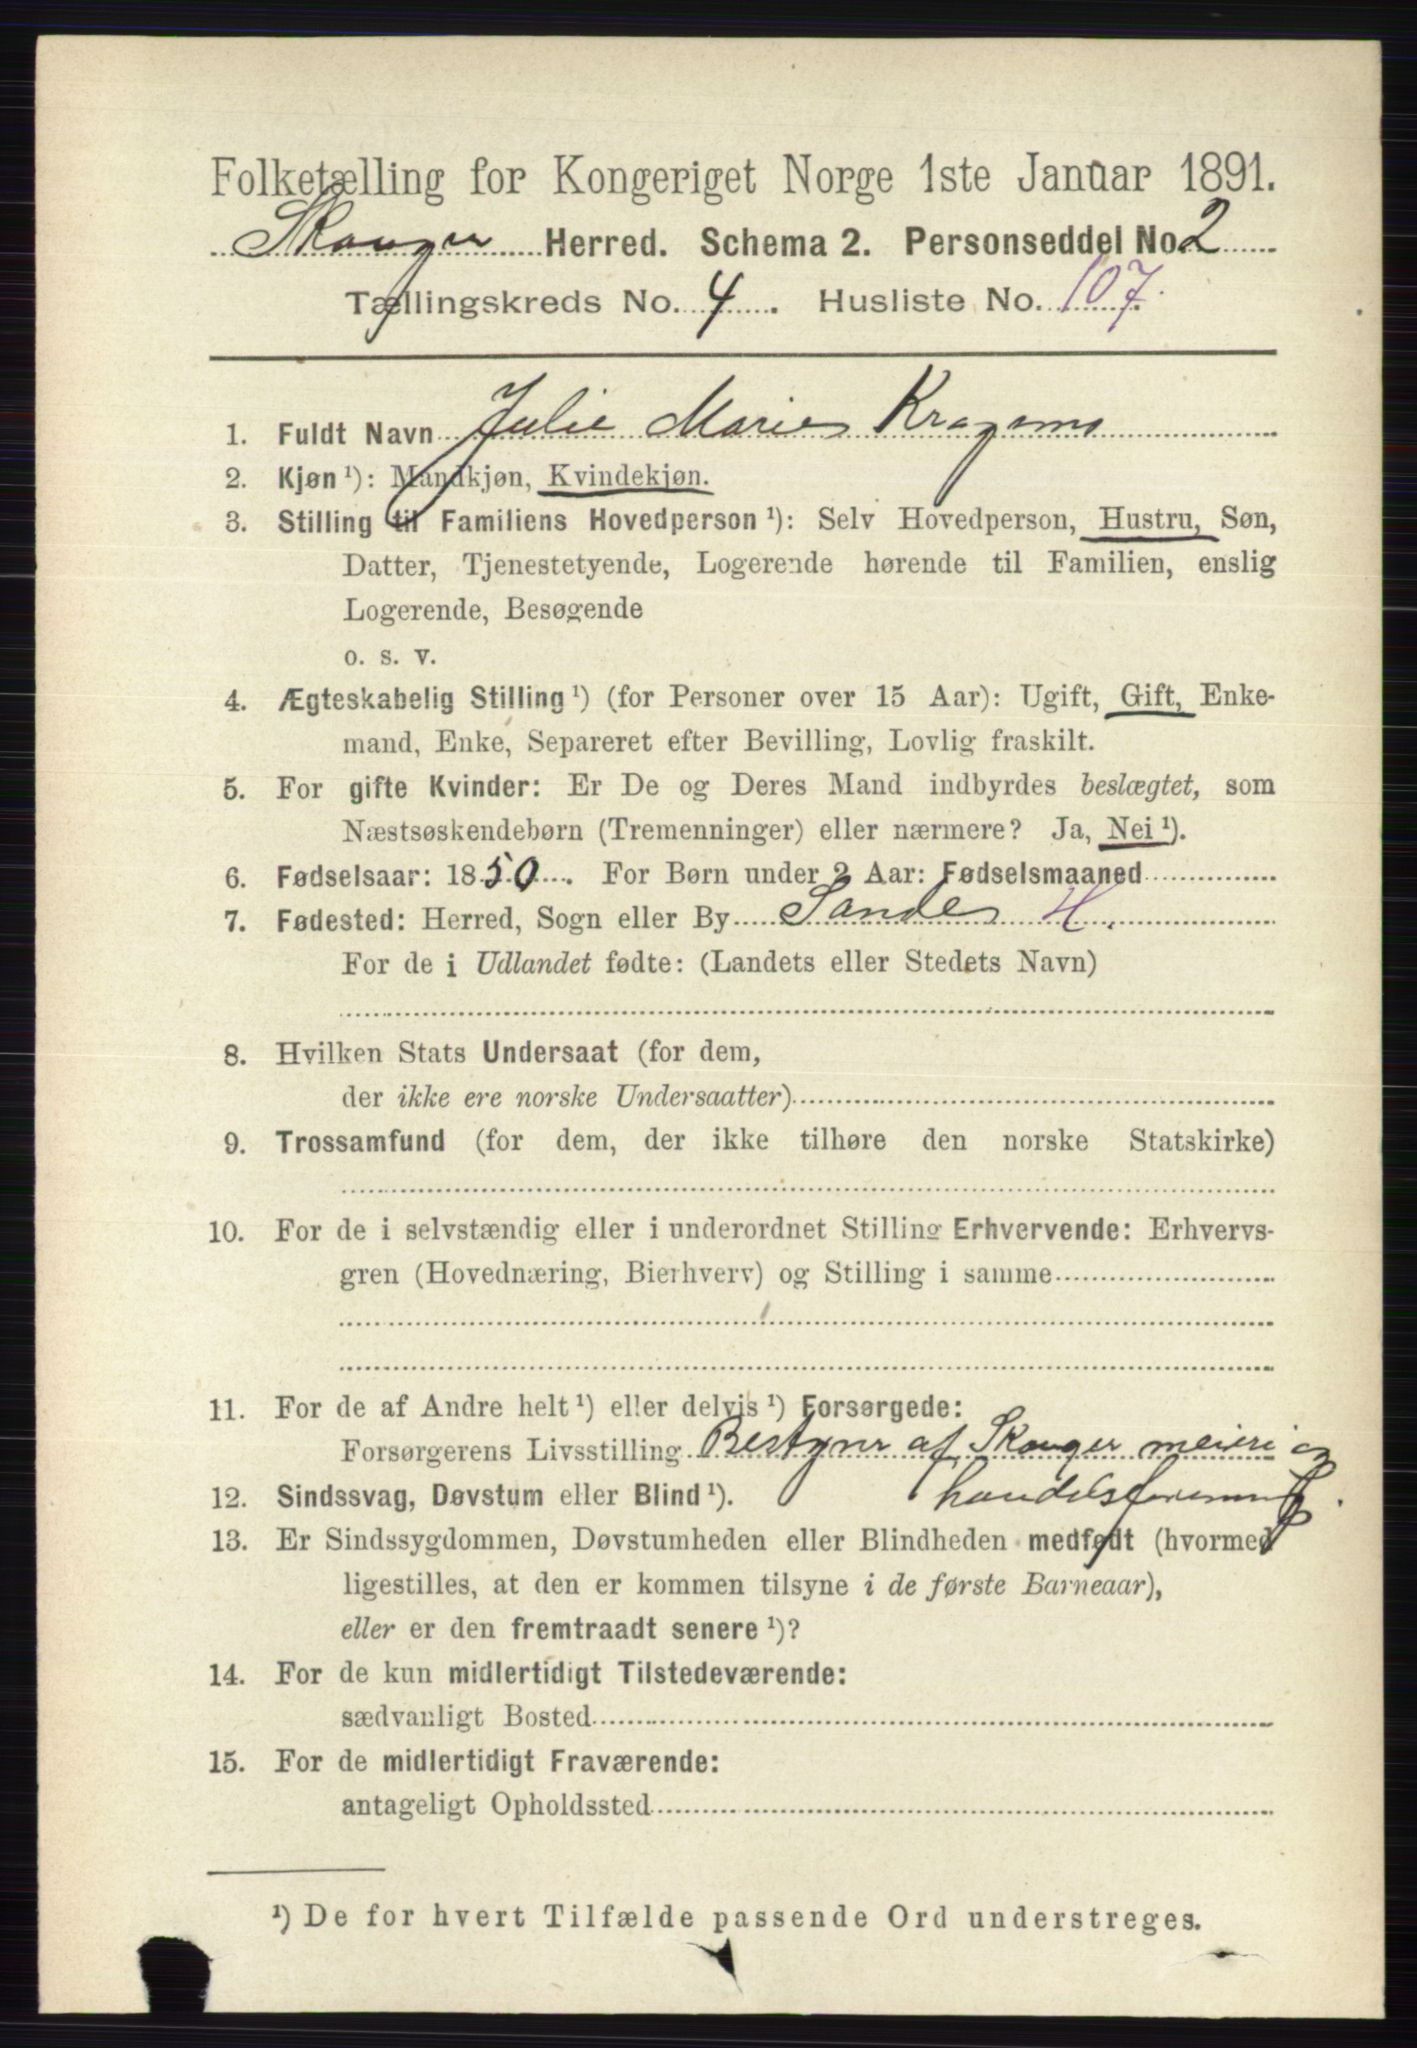 Folketælling for Kongeriget Norge 1ste Januar 1891.
Skouger Herred. Schema 2. Personseddel No. 2
Tællingskreds No. 4. Husliste No. 107.
1. Fuldt Navn Julie Marie
2. Kjøn ¹): Mandkjøn, Kvindekjøn.
3. Stilling til Familiens Hovedperson ¹): Selv Hovedperson, Hustru, Søn,
Datter, Tjenestetyende, Logerende hørende til Familien, enslig
Logerende, Besøgende
o. s. v.
4. Ægteskabelig Stilling ¹) (for Personer over 15 Aar): Ugift, Gift, Enke-
mand, Enke, Separeret efter Bevilling, Lovlig fraskilt.
5. For gifte Kvinder: Er De og Deres Mand indbyrdes beslægtet, som
Næstsøskendebørn (Tremenninger) eller nærmere? Ja, Nei ¹).
6. Fødselsaar: 1850. For Børn under 2 Aar: Fødselsmaaned
7. Fødested: Herred, Sogn eller By Sande H.
For de i Udlandet fødte: (Landets eller Stedets Navn)
8. Hvilken Stats Undersaat (for dem,
der ikke ere norske Undersaatter)
9. Trossamfund (for dem, der ikke tilhøre den norske Statskirke)
10. For de i selvstændig eller i underordnet Stilling Erhvervende: Erhvervs-
gren (Hovednæring, Bierhverv) og Stilling i samme
11. For de af Andre helt ¹) eller delvis ¹) Forsørgede:
Forsørgerens Livsstilling Bestyrer af Skouger meieri og
handelsforening.
12. Sindssvag, Døvstum eller Blind ¹).
13. Er Sindssygdommen, Døvstumheden eller Blindheden medfødt (hvormed
ligestilles, at den er kommen tilsyne i de første Barneaar),
eller er den fremtraadt senere ¹)?
14. For de kun midlertidigt Tilstedeværende:
sædvanligt Bosted
15. For de midlertidigt Fraværende:
antageligt Opholdssted
¹) De for hvert Tilfælde passende Ord understreges.